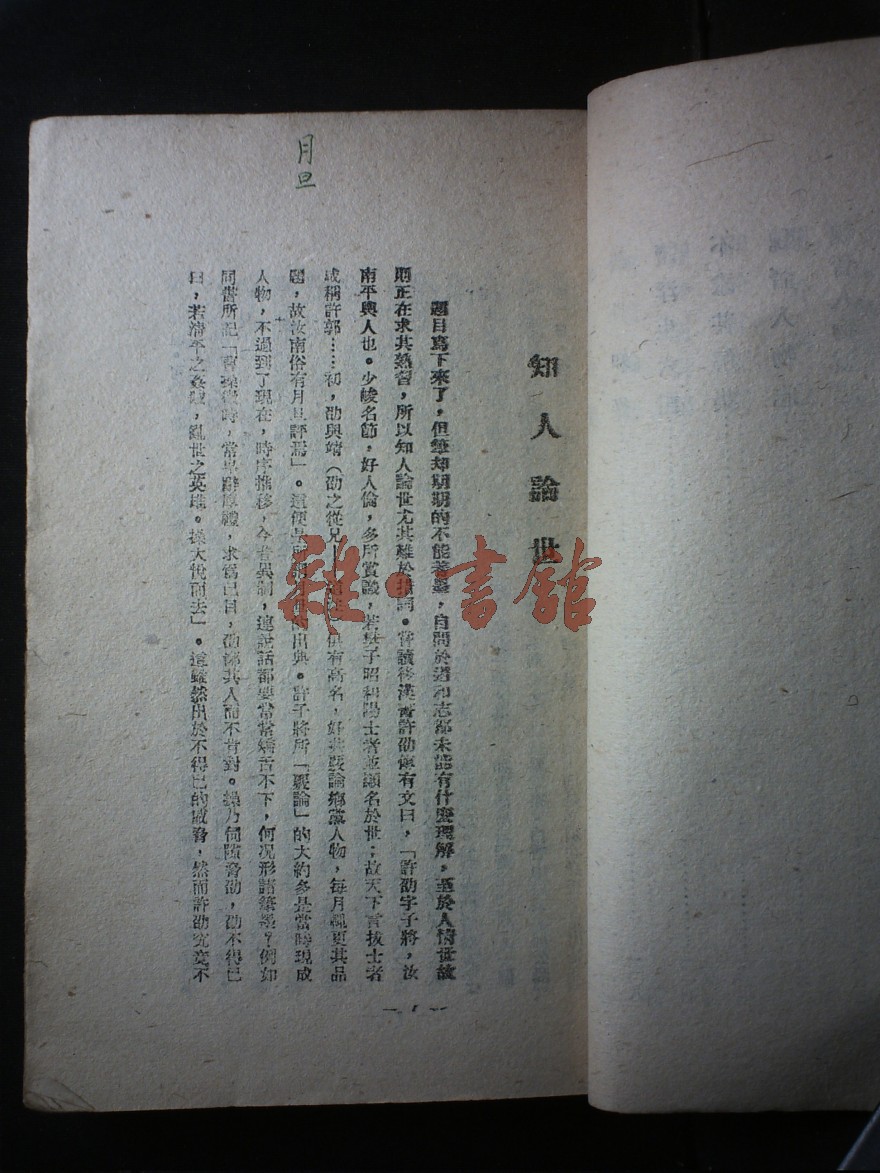 月旦
知人論世
題目寫下來了，但筆却期期的不能著墨，自問於道和志都未能有什麼理解，至於人情世故
則正在求其熟習，所以知人論世尤其難於措詞。嘗讀後漢書許劭傳有文曰，「許劭字子將，汝
南平輿人也。少峻名節，好人倫，多所賞識，若樊子昭和陽士者並顯名於世；故天下言拔士者
咸稱許郭……初，劭與靖（劭之從兄 俱有高名，好共覈論鄉黨人物，每月輒更其品
題，故汝南俗有月旦評焉」。這便是所謂月旦的出典。許子將所「覈論」的大約多是當時現成
人物，不過到了現在，時序推移，今者異制，連說話都要常常矯舌不下，何況形諸筆墨？例如
同書所記「曹操微時，常卑辭厚禮，求爲己目，劭鄙其人而不肯對。操乃伺隙脅劭，劭不得已
曰，若清平之姦賊，亂世之英雄。操大悅而去」。這雖然出於不得已的威脅，然而許劭究竟不
雜·書館